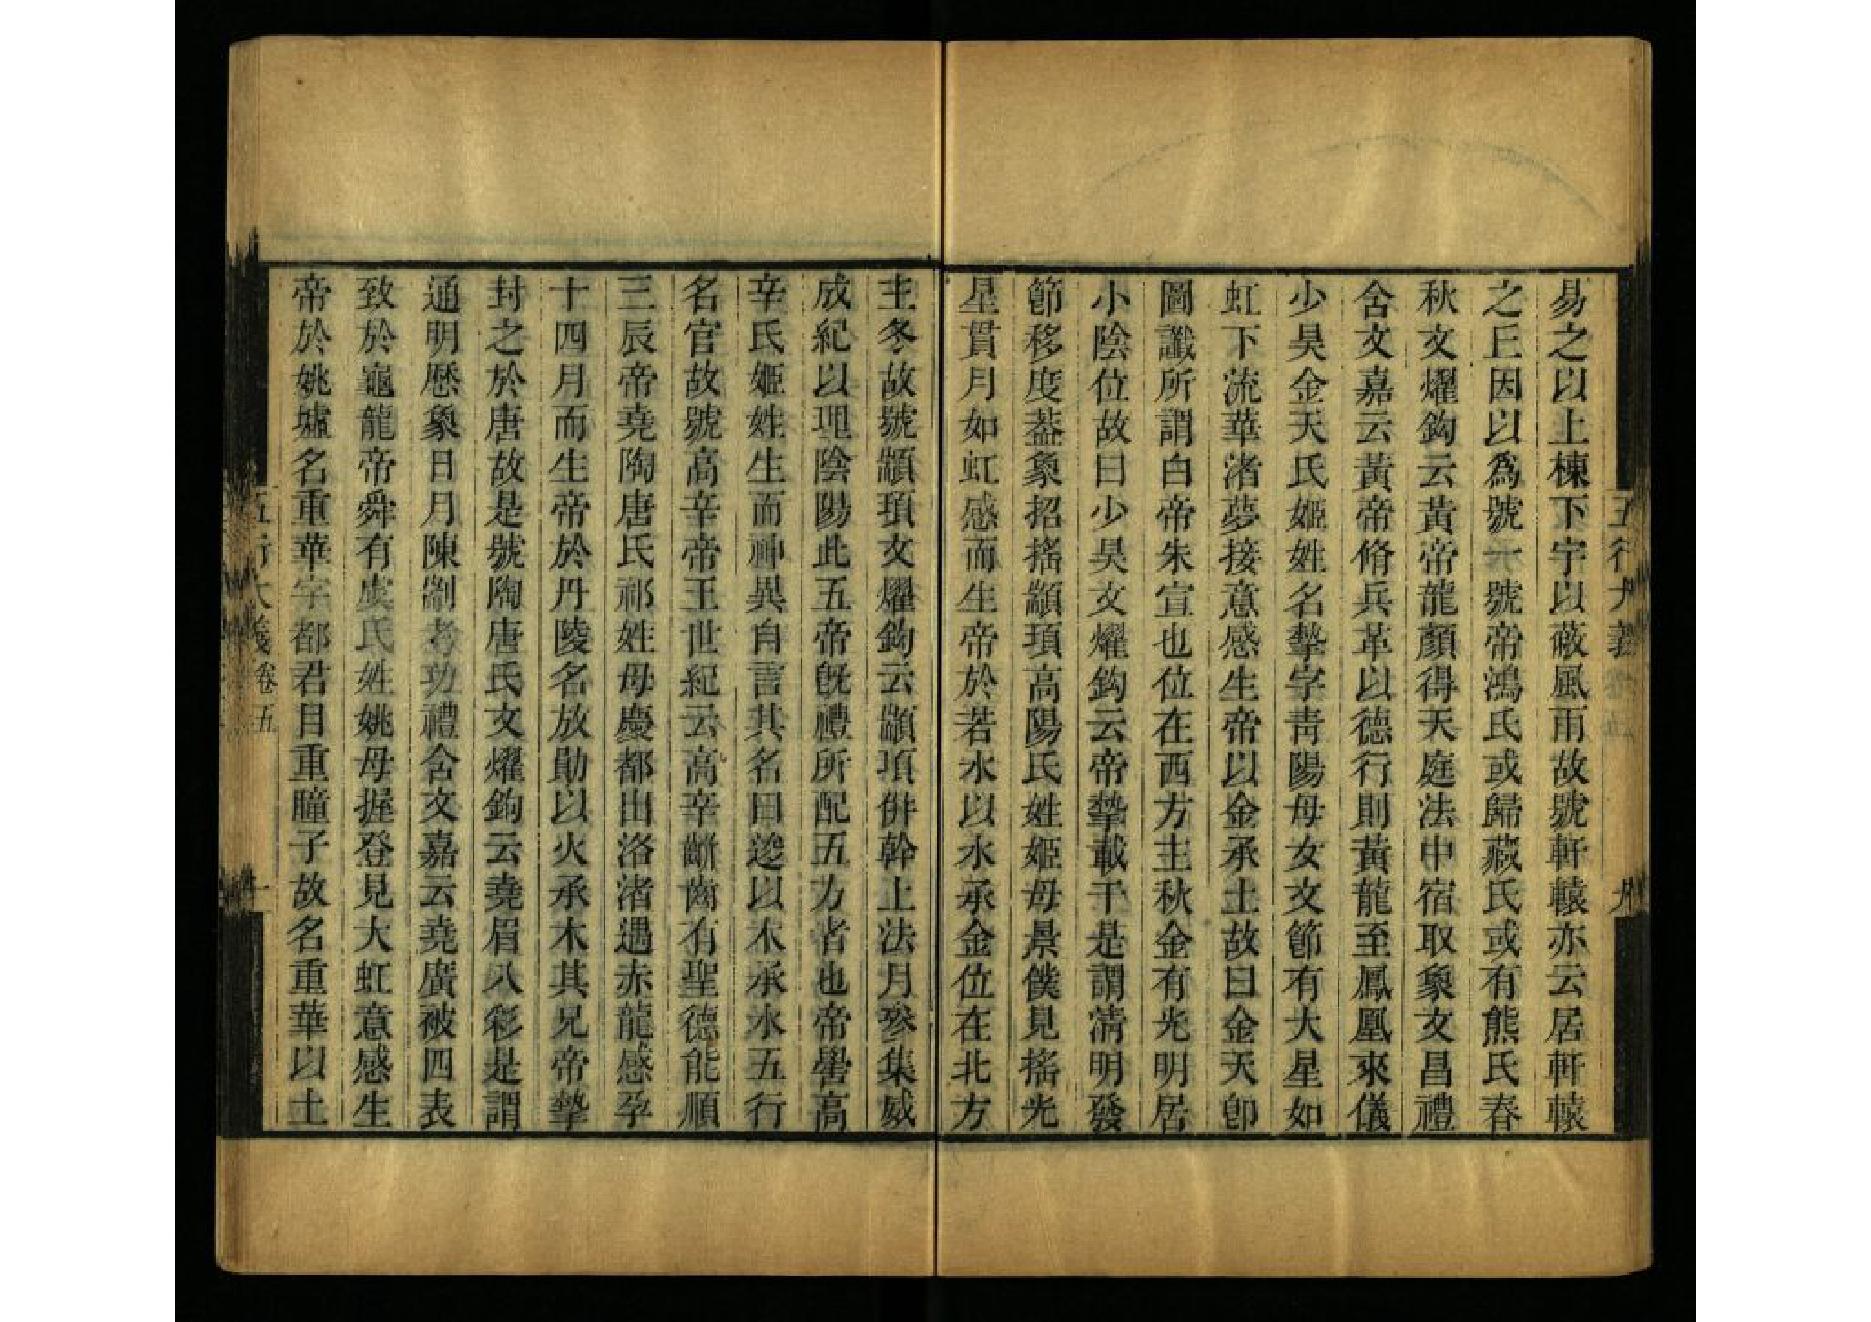 五行大義 卷五 九
易之以上棟下宇以蔽風雨故號軒轅亦云居軒轅
之丘因以爲號一號帝鴻氏或歸藏氏或有熊氏春
秋文燿鈎云黃帝龍顏得天庭法中宿取象文昌禮
含文嘉云黃帝脩兵革以德行則黃龍至鳳凰來儀
少昊金天氏姬姓名摯字靑陽母女文節有大星如
虹下流華渚夢接意感生帝以金承土故曰金天卽
圖讖所謂白帝朱宣也位在西方主秋金有光明居
小陰位故曰少昊文燿鈎云帝摯載干是謂淸明發
節移度葢象招搖顓頊高陽氏姓姬母景僕見搖光
星貫月如虹感而生帝於若水以水承金位在北方
主冬故號顓頊文燿鈎云顓頊倂幹上法月參集威
成紀以理陰陽此五帝旣禮所配五方者也帝嚳高
辛氏姬姓生而神異自言其名曰逡以木承水五行
名官故號高辛帝王世紀云高辛駢齒有聖德能順
三辰帝堯陶唐氏祁姓母慶都出洛渚遇赤龍感孕
十四月而生帝於丹陵名放勛以火承木其兄帝摯
封之於唐故是號陶唐氏文燿鈎云堯眉八彩是謂
通明厯象日月陳剬考功禮含文嘉云堯廣被四表
致於龜龍帝舜有虞氏姓姚母握登見大虹意感生
帝於姚墟名重華字都君目重瞳子故名重華以土
五行大義 卷五